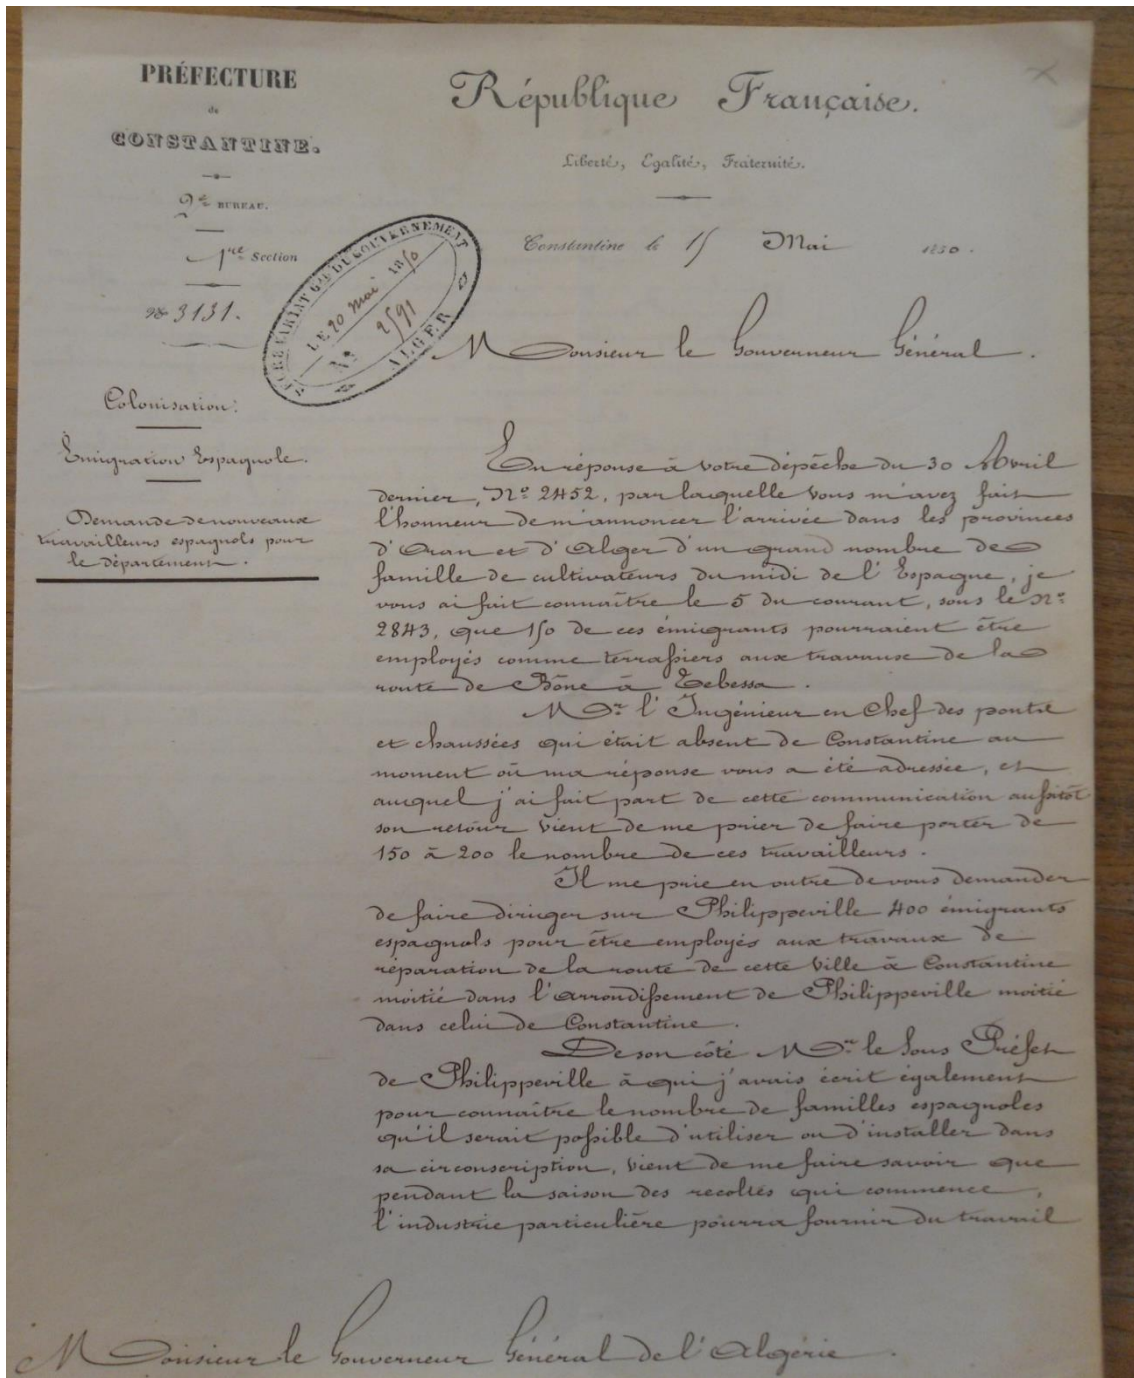 PRÉFECTURE
de
CONSTANTINE.
2e BUREAU.
1re Section
No 3131.
République Française.
Liberté, Egalité, Fraternité.
Constantine le 15 Mai 1850.
SECRETARIAT Gal DU GOUVERNEMENT
LE 20 Mai 1850
No 2591
ALGER
Monsieur le Gouverneur Général.
Colonisation.
Émigration Espagnole.
Demande de nouveaux
travailleurs espagnols pour
le département.
En réponse à votre dépêche du 30 Avril
dernier, No 2452, par laquelle vous m'avez fait
l'honneur de m'annoncer l'arrivée dans les provinces
d'Oran et d'Alger d'un grand nombre de
famille de cultivateurs du midi de l'Espagne, je
vous ai fait connaître le 5 du courant, sous le No
2843, que 150 de ces émigrants pourraient être
employés comme terrassiers aux travaux de la
route de Bône à Tebessa.
Mr l'Ingénieur en Chef des ponts
et chaussées qui était absent de Constantine au
moment où ma réponse vous a été adressée, et
auquel j'ai fait part de cette communication aussitôt
son retour vient de me prier de faire porter de
150 à 200 le nombre de ces travailleurs.
Il me prie en outre de vous demander
de faire diriger sur Philippeville 400 émigrants
espagnols pour être employés aux travaux de
réparation de la route de cette ville à Constantine
moitié dans l'arrondissement de Philippeville moitié
dans celui de Constantine.
De son côté Mr le Sous Préfet
de Philippeville à qui j'avais écrit également
pour connaître le nombre de familles espagnoles
qu'il serait possible d'utiliser ou d'installer dans
sa circonscription, vient de me faire savoir que
pendant la saison des recoltes qui commence,
l'industrie particulière pourra fournir du travail
Monsieur le Gouverneur Général de l'Algérie.